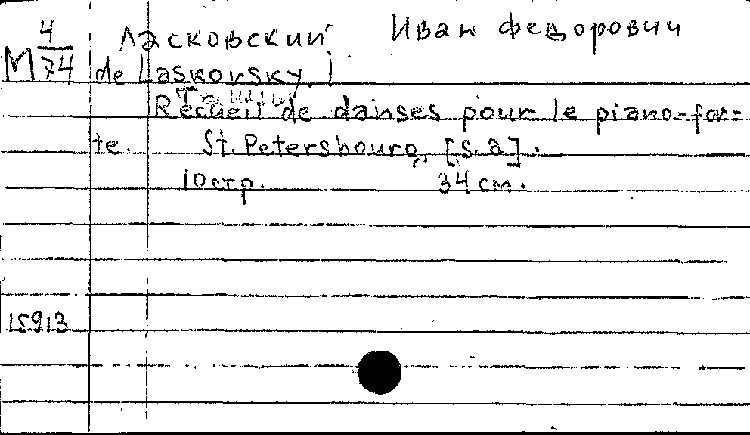 4 Ласковский Иван Федорович
М 74 de Laskovsky, I
Танцы
Recueil de danses pour le piano-for-
te. St. Petersbourg, [s.a].
10стр. 34 см.
15913